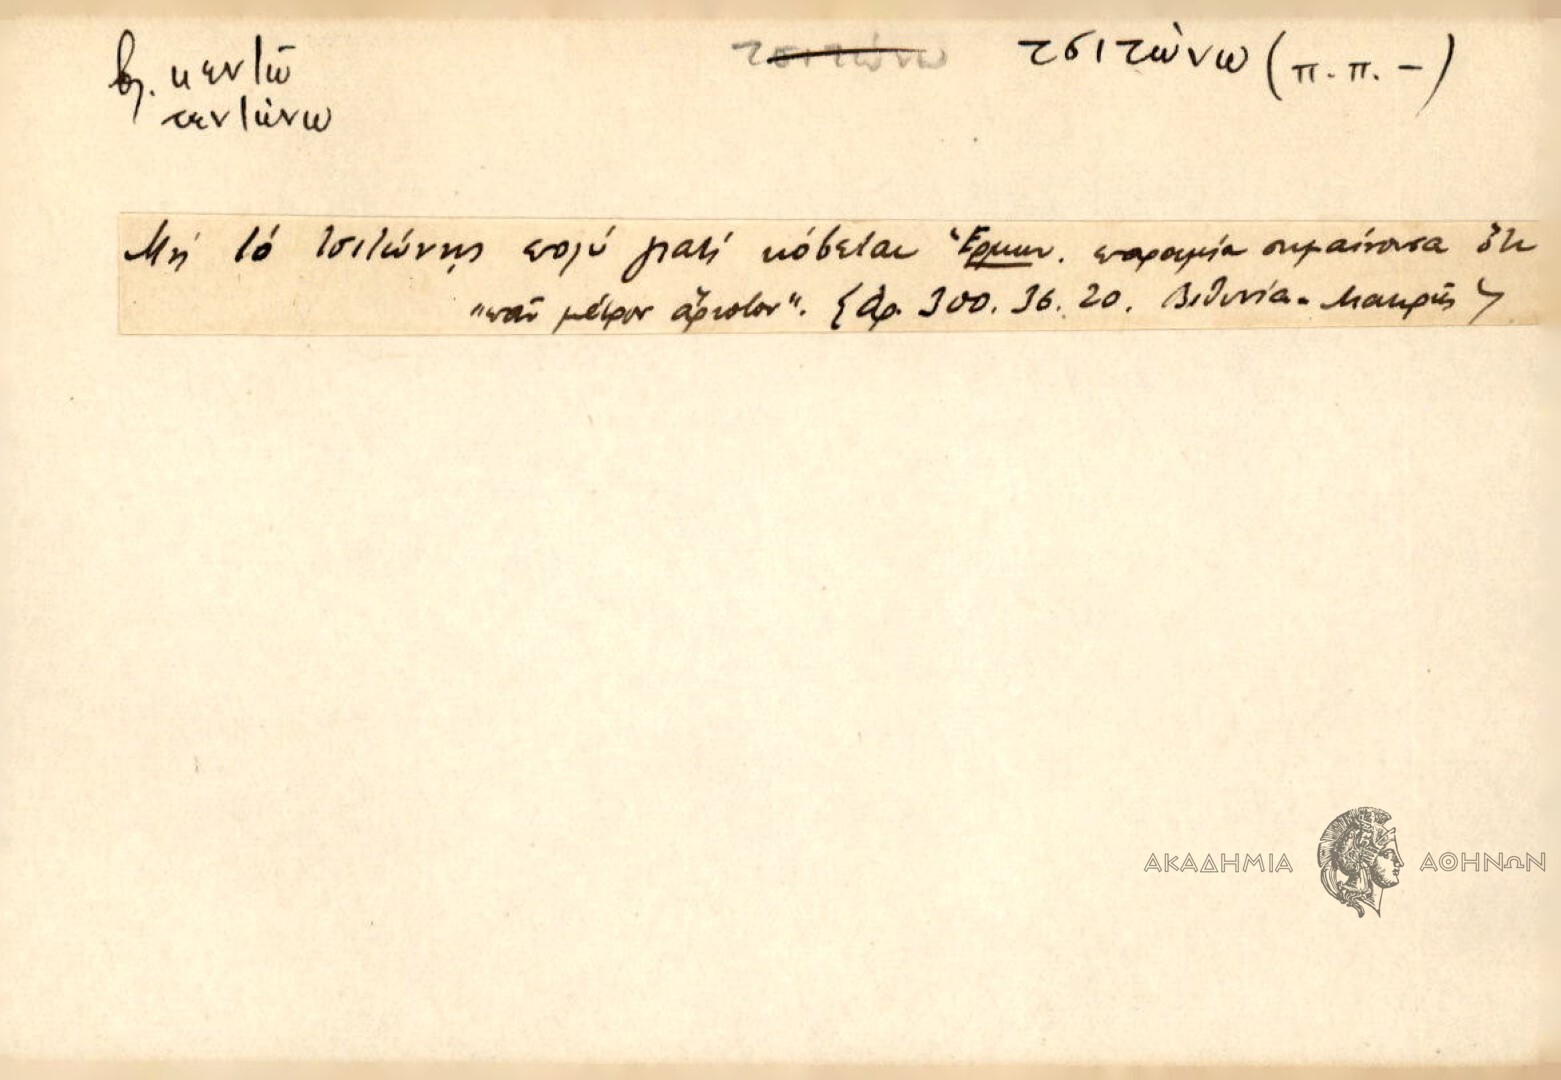 βλ. κεντῶ
τεντώνω
τσιτώνω τσιτώνω (π.π. -)
Μή τό τσιτώνῃς πολύ γιατί κόβεται Ἑρμην. παροιμία σημαίνουσα ὅτι
"πᾶν μέτρον ἄριστον". {ἀρ. 300. 36. 20. Βιθυνία - Μακρῆς}
ΑΚΑΔΗΜΙΑ ΑΘΗΝΩΝ